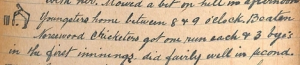 with her. Mowed a bit on hill in afternoon
Youngsters home between 8 & 9 o'clock. Beaten
Norwood Cricketers got one run each & 3 bye's
in the first innings. did fairly well in second.